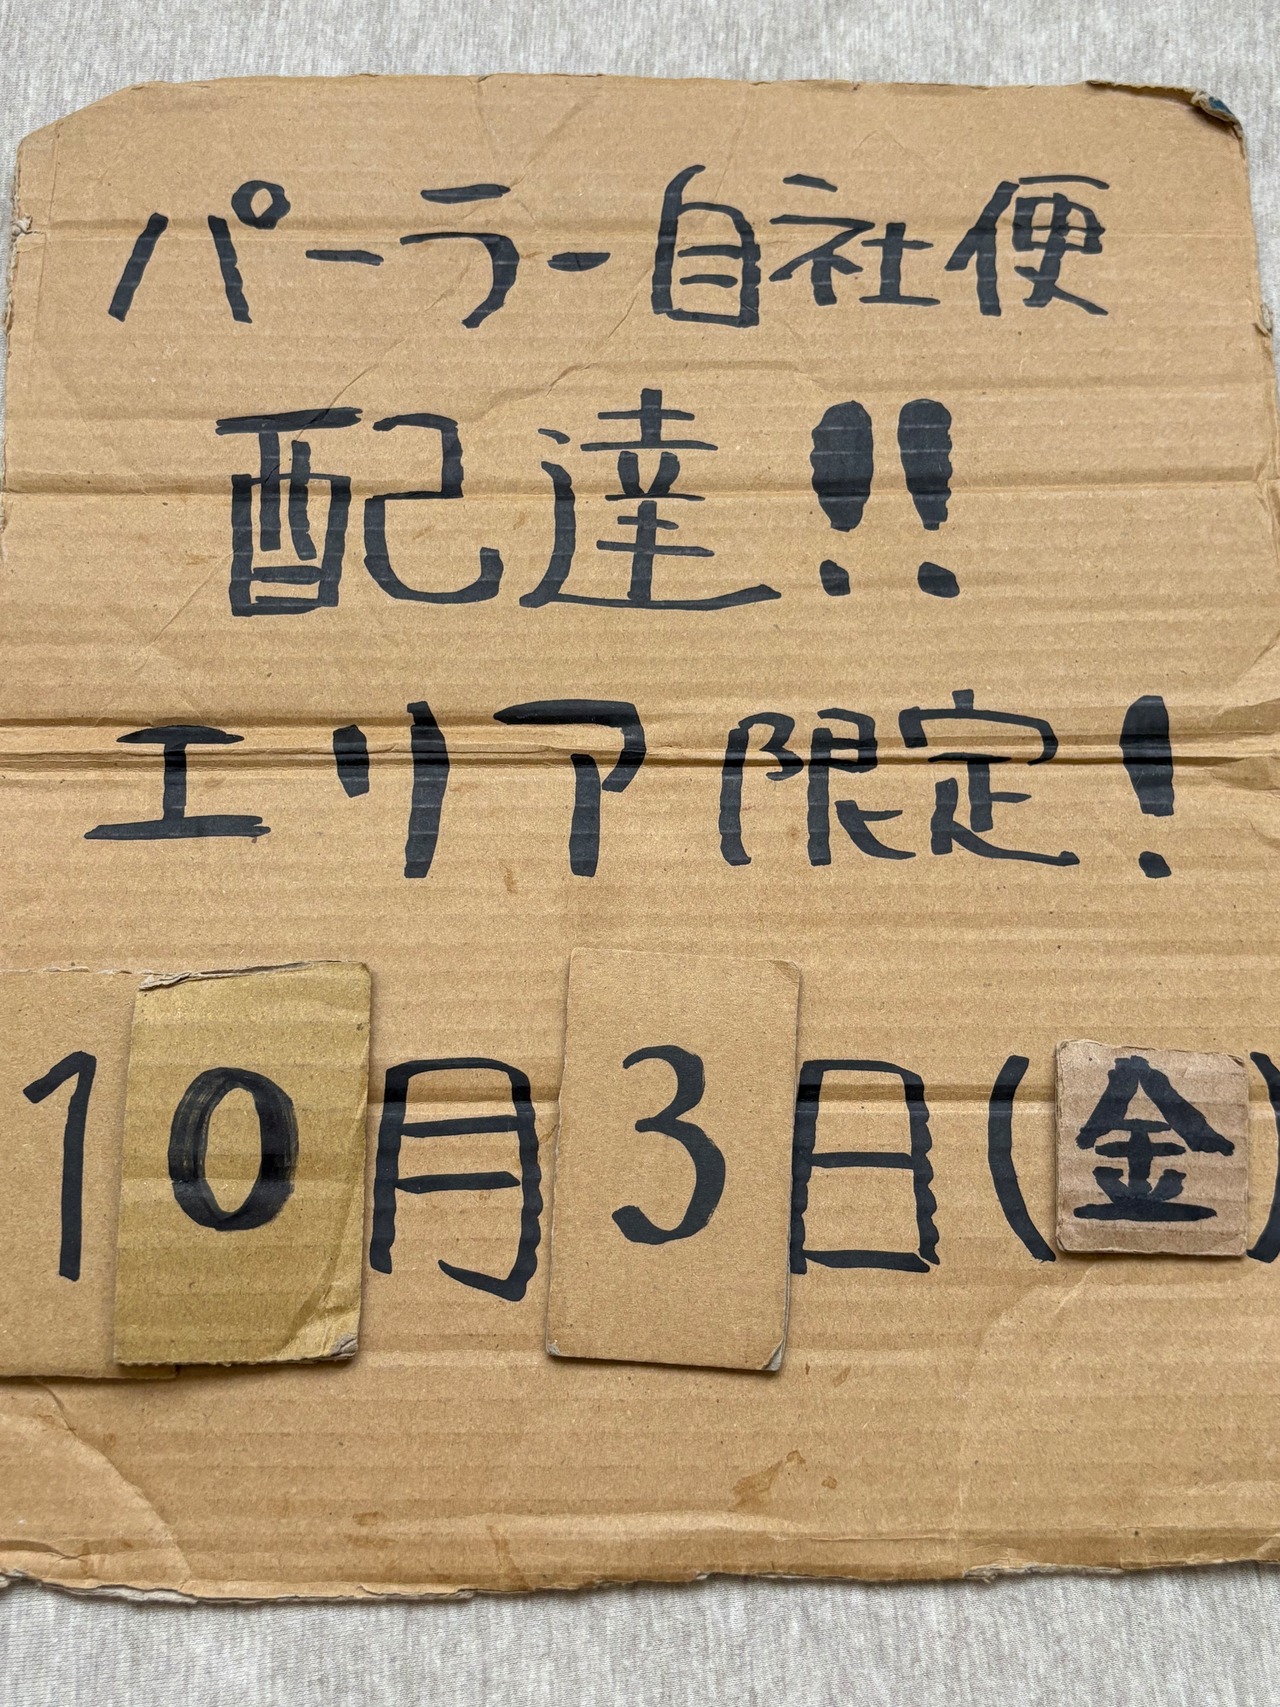 パーラー自社便
配達!!
エリア限定!
10月3日(金)